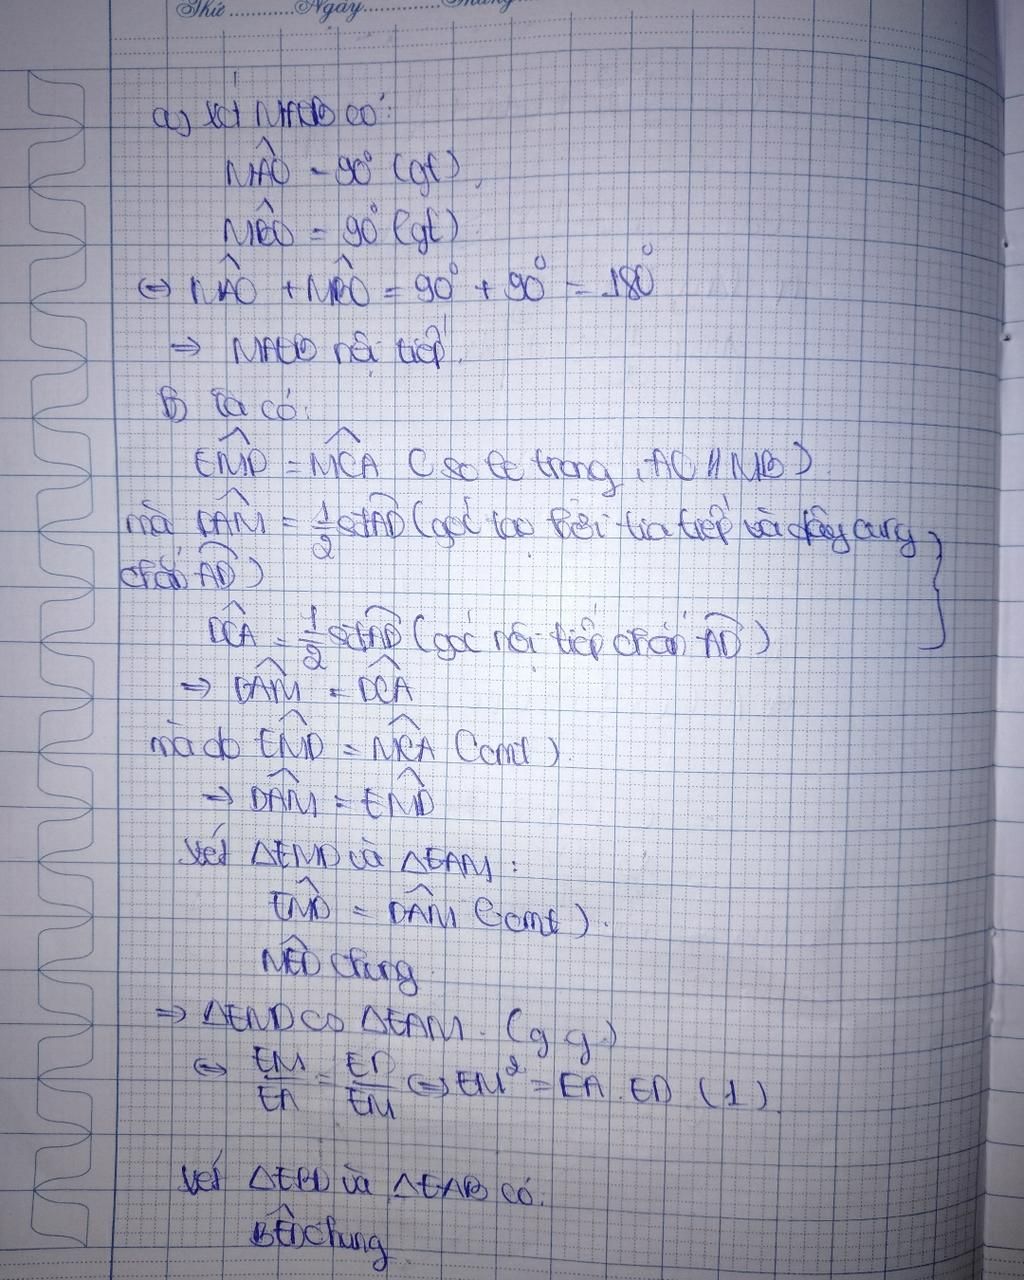 Thứ..........Ngày...........Tháng
a) Xét MAOB có:
MÂO = 90° (gt)
MB̂O = 90° (gt)
⇔ MÂO + MB̂O = 90° + 90° = 180°
⇒ MAOB nội tiếp.
b) Ta có:
EM̂D = MĈA (so le trong, AC // MB)
mà DÂM = 1/2 sđ AD (góc tạo bởi tia tiếp và dây cung
chắn AD)
DĈA = 1/2 sđ AD (góc nội tiếp chắn AD)
⇒ DÂM = DĈA
mà do EM̂D = MĈA (cmt)
⇒ DÂM = EM̂D
Xét ΔEMD và ΔEAM:
EM̂D = DÂM (cmt).
MÊD chung
⇒ ΔEMD ∽ ΔEAM. (g g)
⇔ EM/EA = ED/EM ⇔ EM² = EA . ED (1)
Xét ΔEBD và ΔEAB có:
BÊD chung